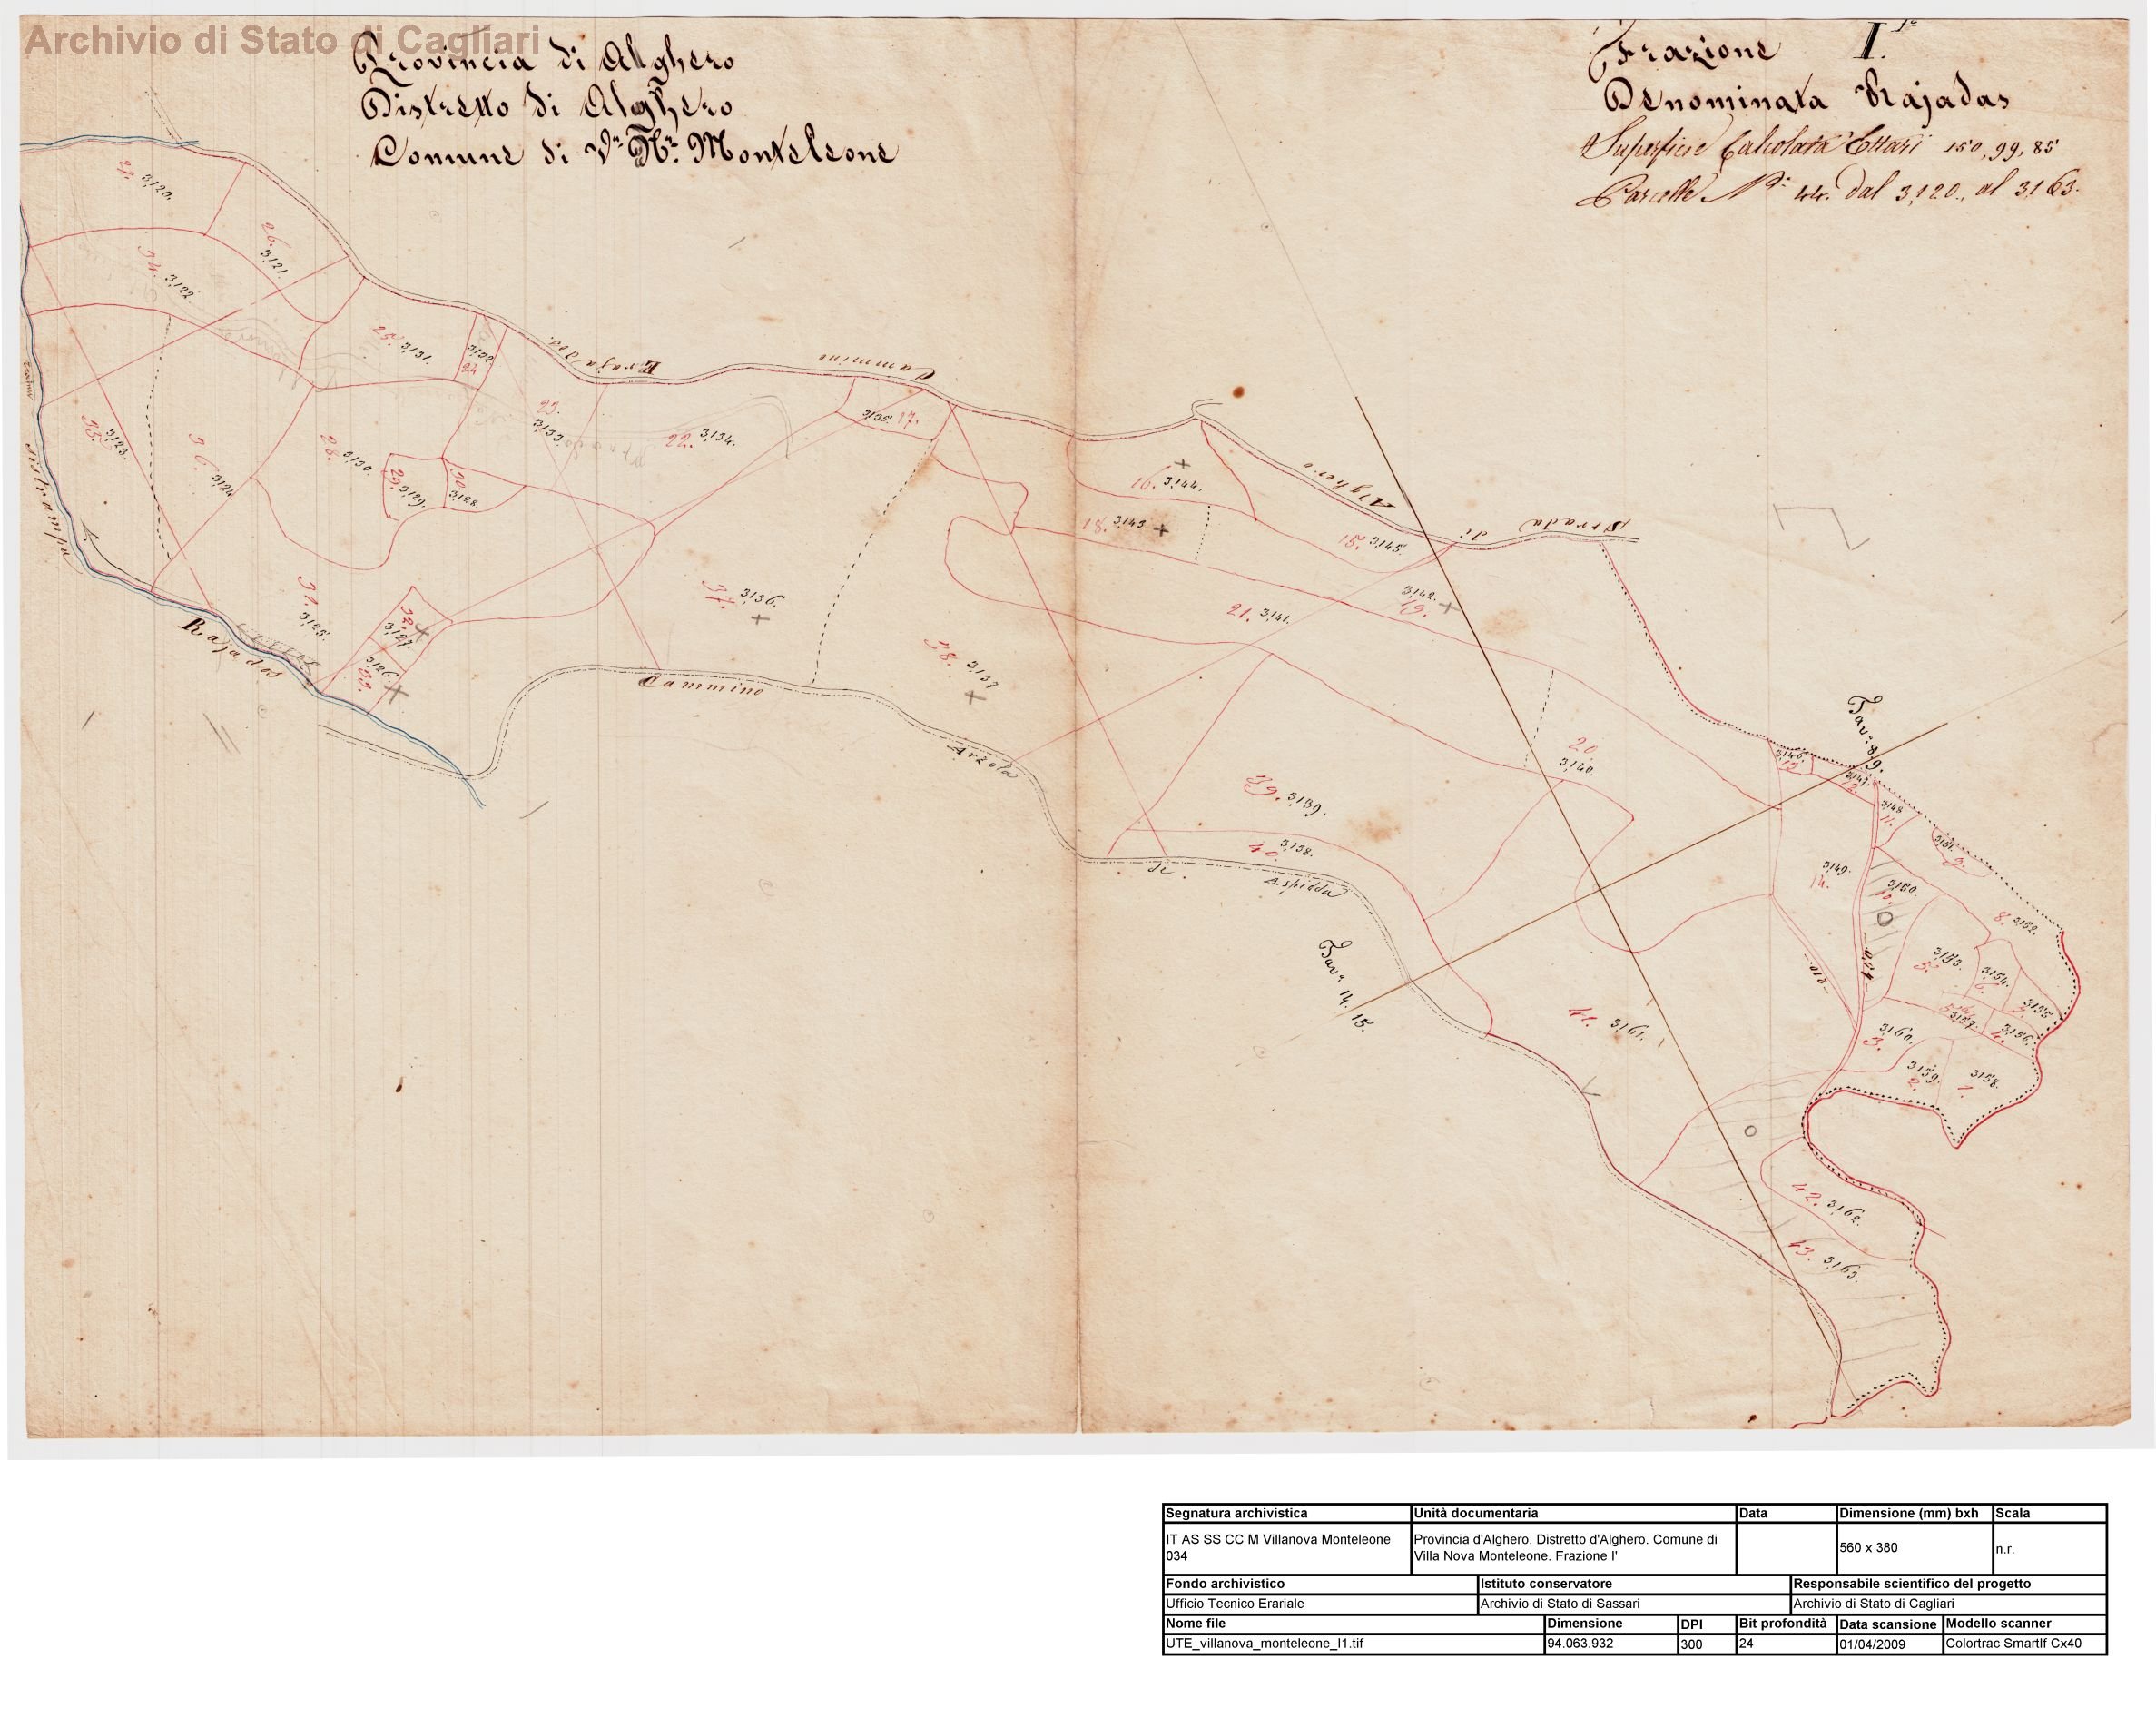 Archivio di Stato di Cagliari
Provincia di Alghero
Distretto di Alghero
Comune di V.ª N.ª Monteleone
Frazione I.ª
Denominata Brajadas
Superficie Calcolata Ettari 150, 99, 85
Parcelle N.i 44. dal 3,120., al 3,163.
3,120.
26. 3,121.
34. 3,122
25. 3,131.
3,132
24
23. 3,133.
22. 3,134.
3,135. 17.
35. 3,123.
36. 3,124
28. 3,130.
29. 3,129.
30. 3,128.
31. 3,125.
32. 3,127.
3,126. 33.
37. 3,136.
38. 3,137
16. 3,144.
18. 3,143
15. 3,145.
3,142. 19.
21. 3,141.
20. 3,140.
39. 3,139.
3,138. 40.
3,146. 13
3,147. 12.
3,148 11.
3,149. 14.
3,150 10.
3,151. 9.
8. 3,152.
3,153.
3,154. 6.
3,155 7.
3,156. 4.
3,157.
3158. 1.
3,159. 2.
3,160. 3.
41. 3,161.
42. 3,162.
43. 3,163.
Brajadas.
Cammino
Strada di Alghero
Rajadas
Cammino
Arzola
Aspidda
Tav.ª 8, 9.
Tav.ª 14. 15.
Segnatura archivistica Unità documentaria Data Dimensione (mm) bxh Scala
IT AS SS CC M Villanova Monteleone 034
Provincia d'Alghero. Distretto d'Alghero. Comune di
Villa Nova Monteleone. Frazione I'
560 x 380
n.r.
Fondo archivistico Istituto conservatore Responsabile scientifico del progetto
Ufficio Tecnico Erariale Archivio di Stato di Sassari Archivio di Stato di Cagliari
Nome file Dimensione DPI Bit profondità Data scansione Modello scanner
UTE_villanova_monteleone_I1.tif 94.063.932 300 24 01/04/2009 Colortrac Smartlf Cx40